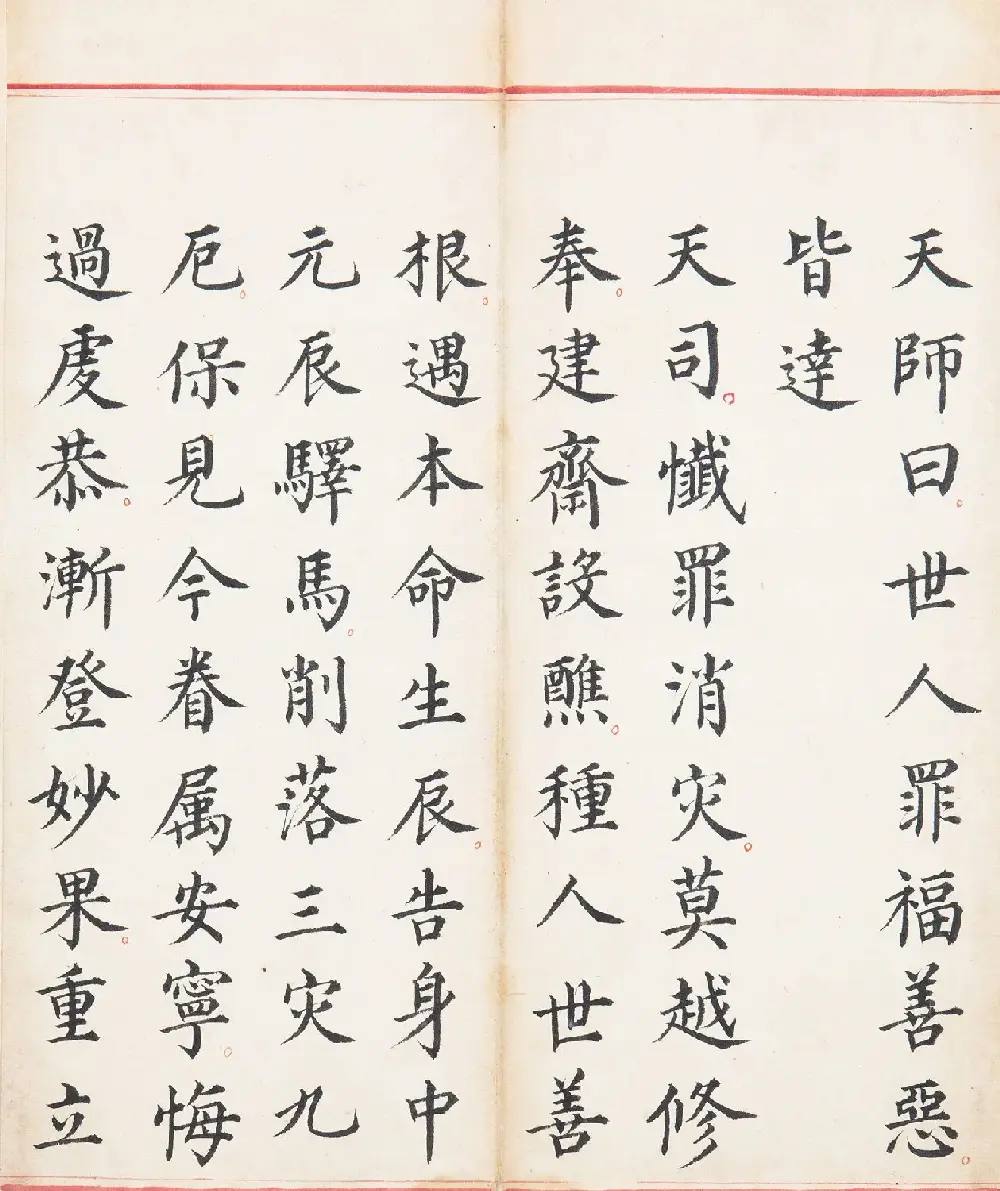 天師曰。世人罪福善惡。
皆達
天司。懺罪消灾。莫越修
奉。建齋設醮。種人世善
根。遇本命生辰。告身中
元辰驛馬。削落三灾九
厄。保見今眷属安寧。悔
過虔恭。漸登妙果。重立